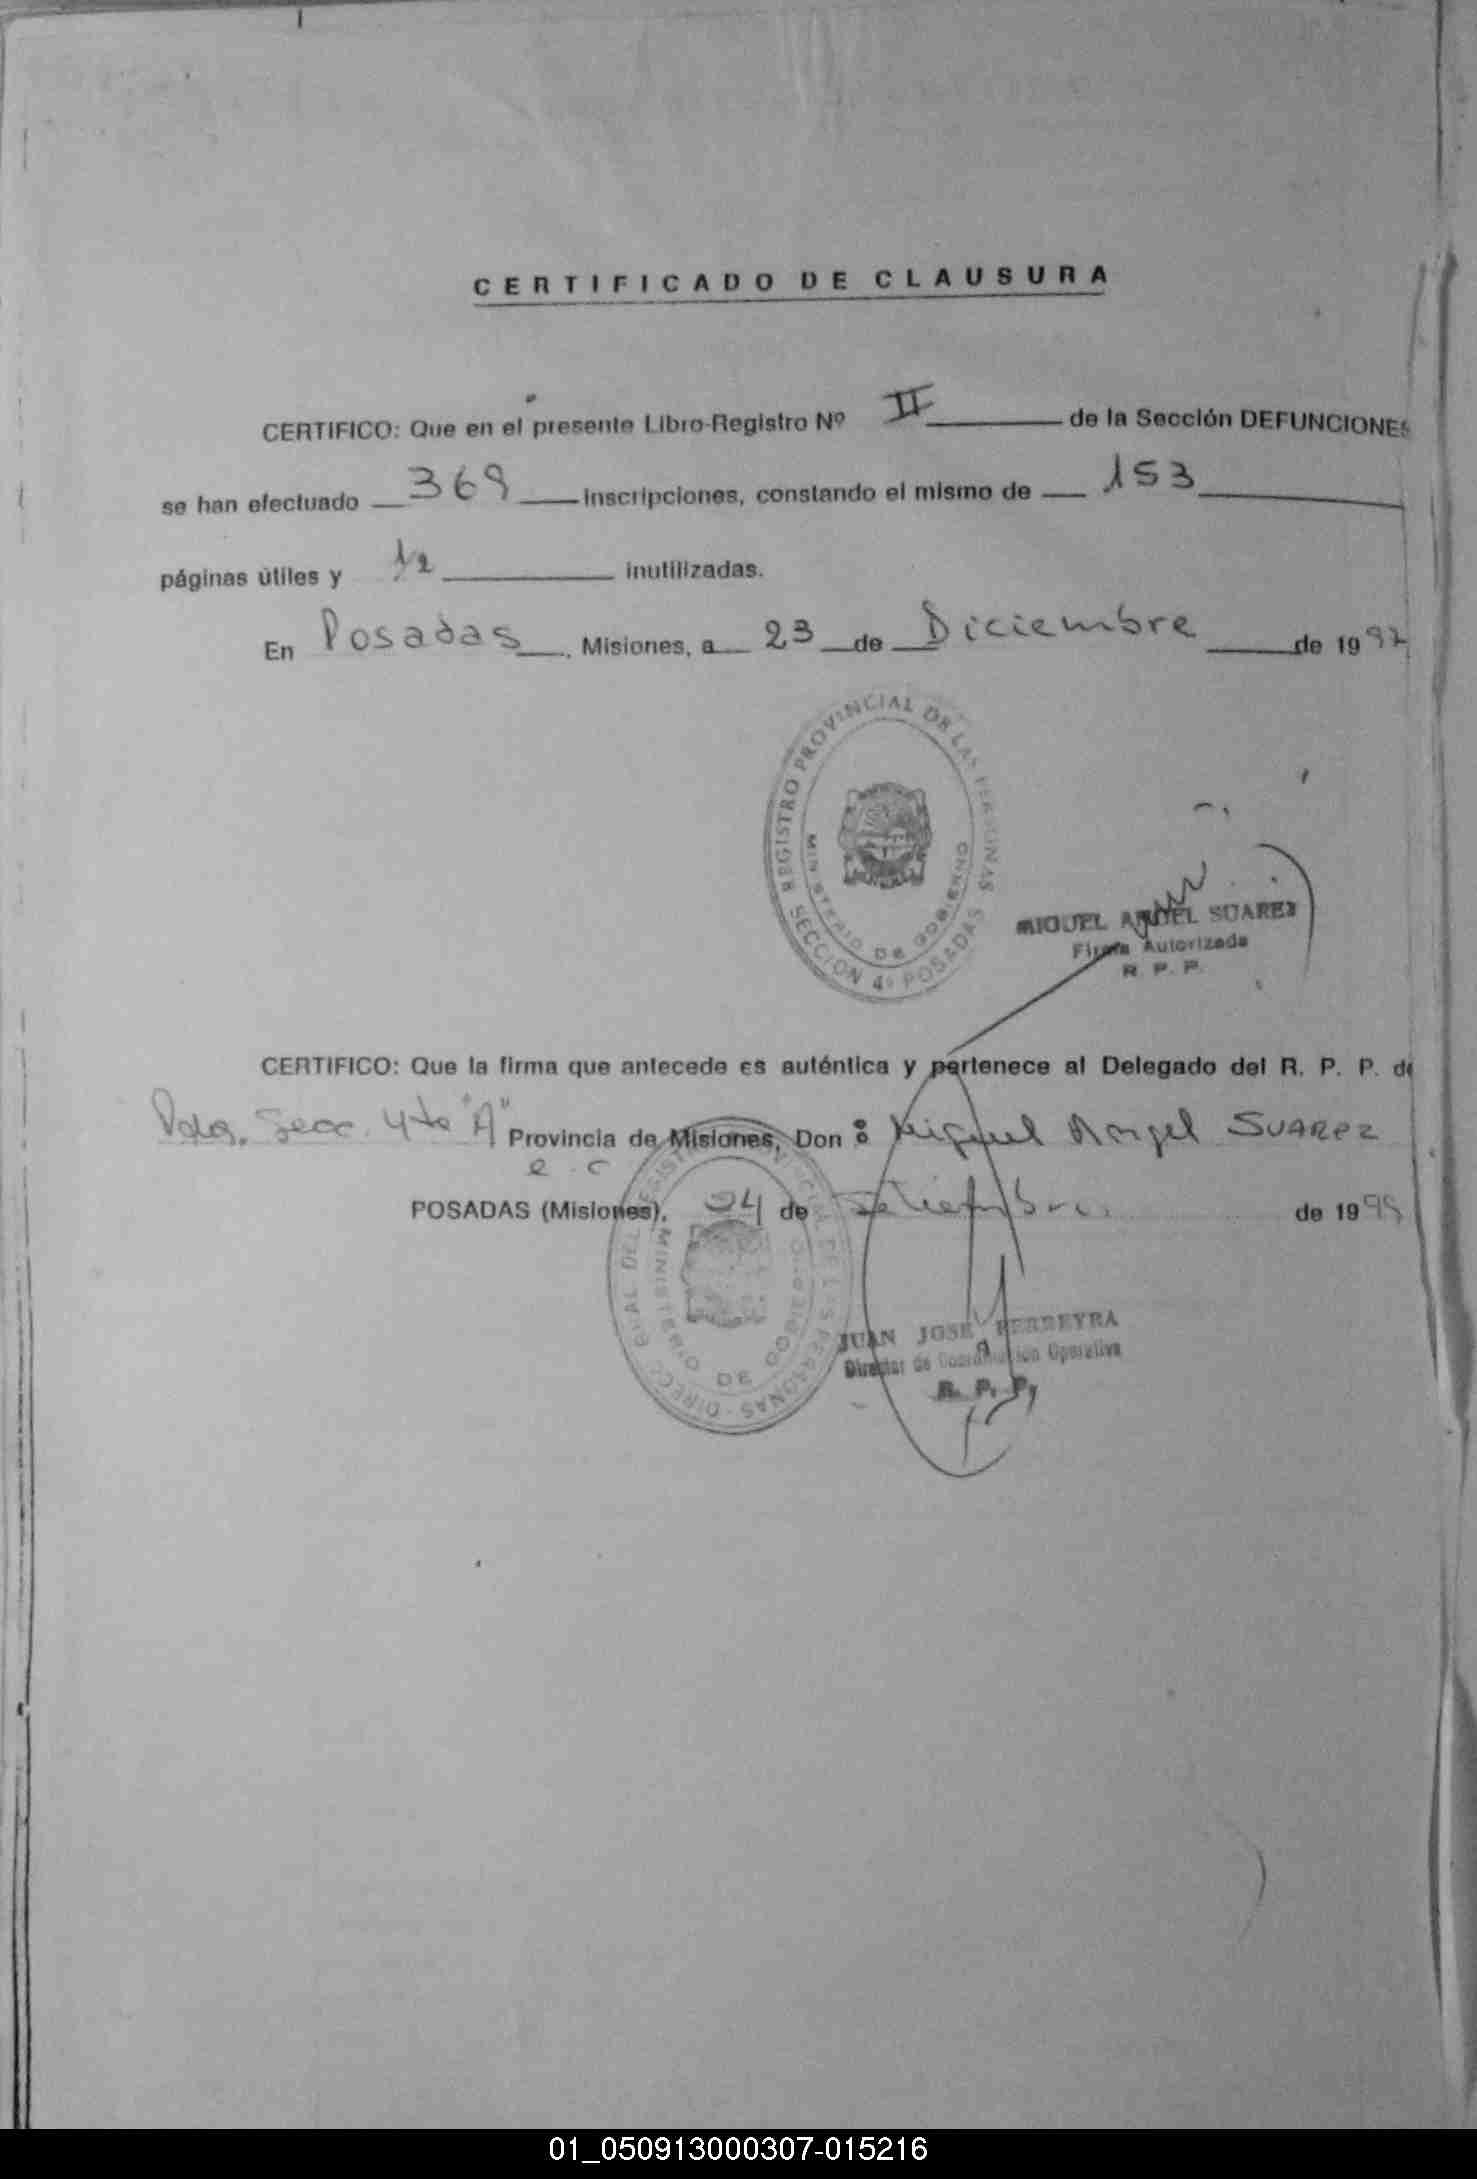 CERTIFICADO DE CLAUSURA
CERTIFICO: Que en el presente Libro-Registro Nº II de la Sección DEFUNCIONES
se han efectuado 369 inscripciones, constando el mismo de 153
páginas útiles y 1/2 inutilizadas.
En Posadas, Misiones, a 23 de Diciembre de 1997
REGISTRO PROVINCIAL DE LAS PERSONAS
MINISTERIO DE GOBIERNO
SECCION 4º POSADAS
MIGUEL ANGEL SUAREZ
Firma Autorizada
R. P. P.
CERTIFICO: Que la firma que antecede es auténtica y pertenece al Delegado del R. P. P. de
Pdas. Secc. 4ta "A" Provincia de Misiones, Don: Miguel Angel SUAREZ
POSADAS (Misiones), 04 de Setiembre de 199
MINISTERIO DE GOBIERNO
JUAN JOSE FERREYRA
Director de Coordinación Operativa
R. P. P.
01_050913000307-015216